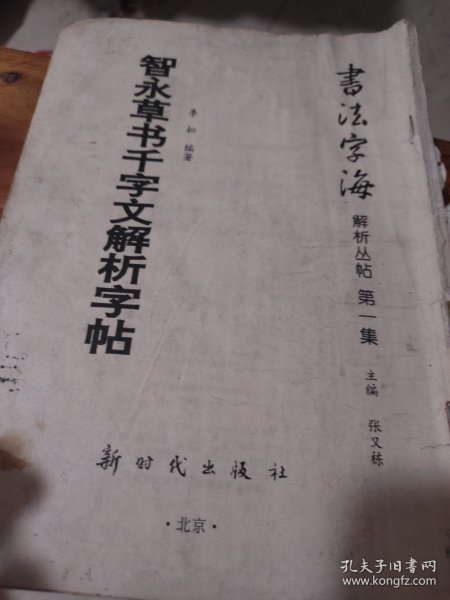 書法字海
解析丛帖 第一集
主编 张又栋
李松 编著
智永草书千字文解析字帖
新时代出版社
·北京·
孔夫子旧书网
www.kongfz.com